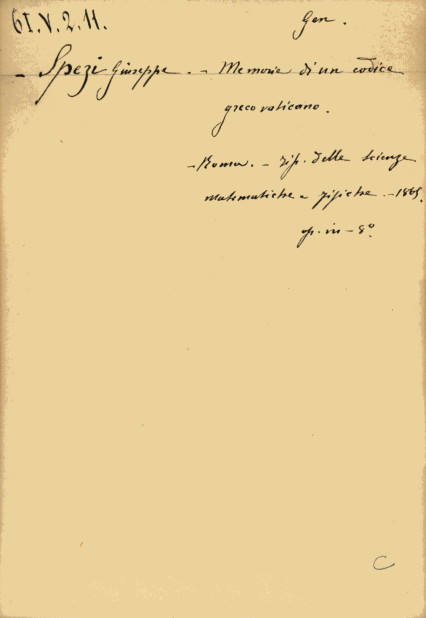 61.V.2.11.
Gen.
- Spezi Giuseppe. - Memorie di un codice
greco vaticano.
- Roma. - Tip. delle scienze
matematiche e fisiche. - 1865.
op. in - 8º
C